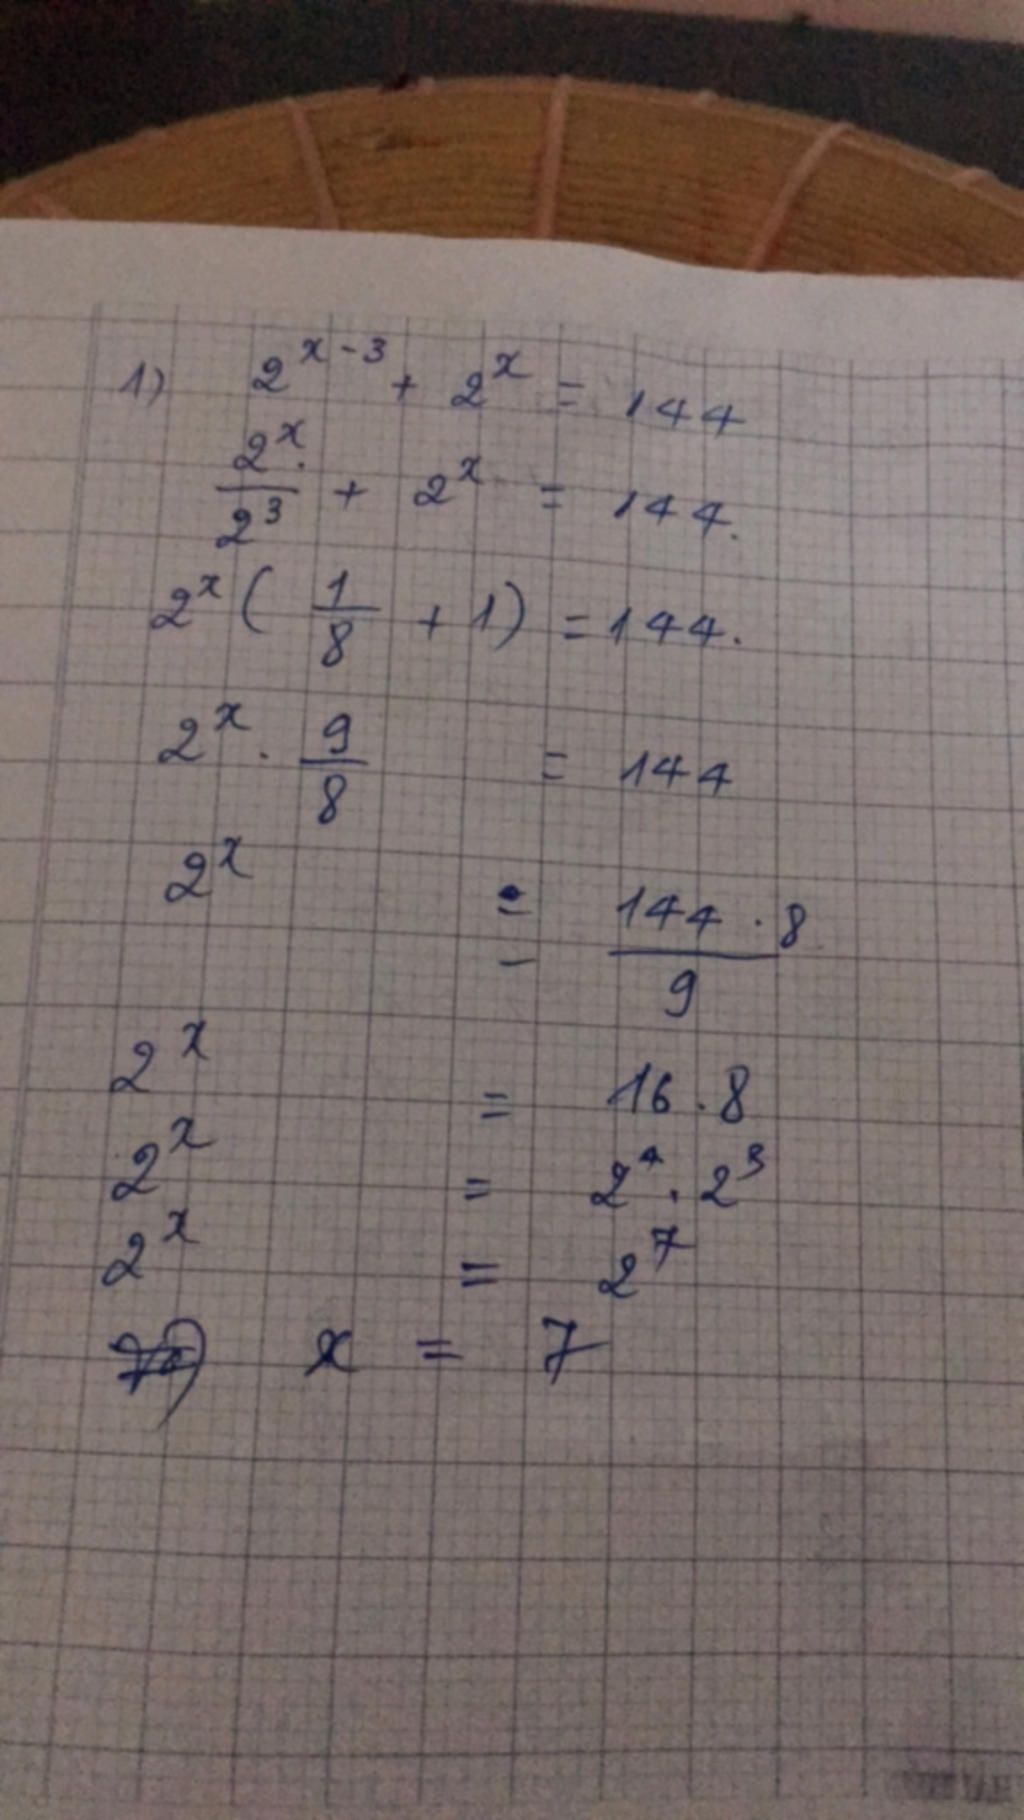 1) 2^{x-3} + 2^x = 144
\frac{2^x}{2^3} + 2^x = 144.
2^x ( \frac{1}{8} + 1) = 144.
2^x . \frac{9}{8} = 144
2^x = \frac{144 . 8}{9}
2^x = 16 . 8
2^x = 2^4 . 2^3
2^x = 2^7
x = 7